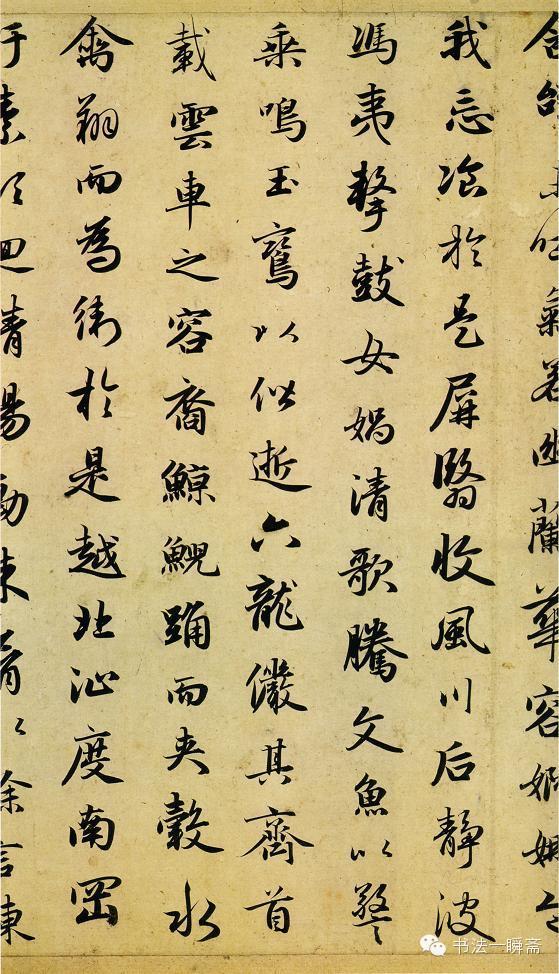 含辭未吐氣若幽蘭華容婀娜令
我忘飡於是屏翳收風川后靜波
馮夷擊鼓女媧清歌騰文魚以警
乘鳴玉鸞以偕逝六龍儼其齊首
載雲車之容裔鯨鯢踴而夾轂水
禽翔而為衛於是越北沚度南岡
素領迴清陽動朱脣以徐言陳
书法一瞬斋